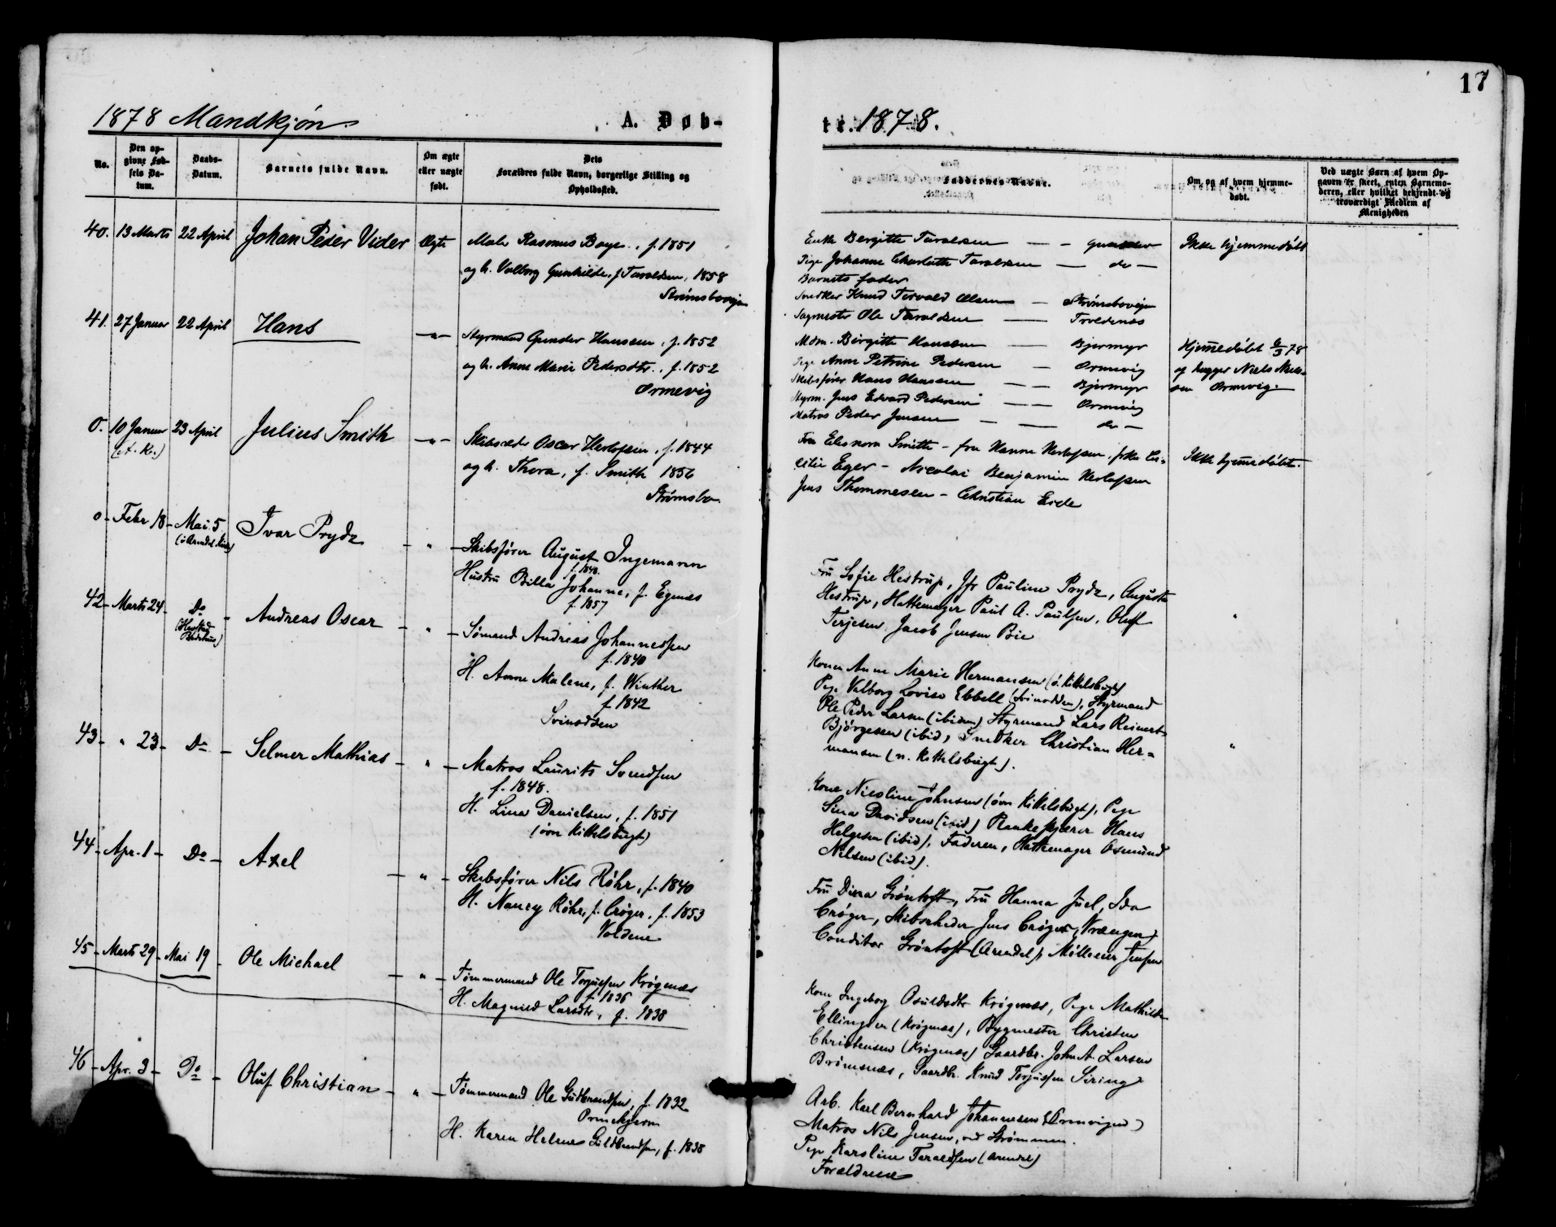 1878 Mandkjøn
A. Døb-
te. 1878.
17
No.
Den op-
givne Fød-
sels Da-
tum.
Daabs-
Datum.
Barnets fulde Navn.
Om ægte
eller uægte
født.
Dets
Forældres fulde Navn, borgerlige Stilling og
Opholdssted.
Faddernes Navne.
Om, og af hvem hjemme-
døbt.
Ved uægte Barn af hvem Op-
gaven er skeet, enten Barnemo-
deren, eller hvilket bekjendt og
troværdigt Medlem af
Menigheden
40. 13 Marts 22 April Johan Peder Vider Ægte Maler Rasmus Boye, f. 1851
og h. Valborg Gunhilde, f. Taraldsen, 1858
Strømsboveien
Enke Bergitte Taralsen
Pige Johanne Charlotte Taralsen — do —
Barnets fader
Snedker Knud Tervald Olsen — Strømsboveien
Sagmester Ole Taraldsen — Trældenæs
Ikke hjemmedøbt
41. 27 Januar 22 April Hans — " — Styrmand Gunder Hanssen, f. 1852
og h. Anne Marie Pedersdtr., f. 1852
Ormevig
Mdm. Birgitte Hanssen — Bjermyr
Pige Anne Petrine Pedersen — Ormevig
Skibsfører Hans Hanssen — Bjermyr
Styrm. Jens Edvard Pedersen — Ormevig
Matros Peder Jensen — do —
Hjemmedøbt 2/3 78
af hugger Niels Niel-
sen Ormevig.
0. 10 Januar 23 April Julius Smith — " — Skibsreder Oscar Herlofsen, f. 1844
(i A. K.)
og h. Thora, f. Smith 1856
Strømsbo
Fru Elenora Smith – fru Hanna Herlofsen, frkn Ce-
cilie Eger – Nicolai Benjamin Herlofsen
Jens Thommesen – Christian Eyde
Ikke hjemmedøbt.
0 – Febr 18 – Mai 5 Ivar Prydz — " — Skibsfører August Ingemann
(i Arendal Kirke)
f. 1848.
Hustru Bolla Johanne, f. Egenæs
f. 1857
Fru Sofie Hestrup, Jfr Pauline Prydz, Augusta
Hestrup, Hattemager Paul A. Paulsen, Oluf
Terjesen, Jacob Jensen Boie
42 – Marts 24 – Do – Andreas Oscar — " — Sømand Andreas Johannessen
f. 1840
H. Anne Malene, f. Winther
f. 1842
Svinodden
Konen Anne Marie Hermansen (ø. Kittelsbugt)
Pige Valborg Lovise Ebbell (Svinodden), Styrmand
Ole Peder Larsen (ibidem) Styrmand Lars Reinert
Bjørgessen (ibid), Snedker Christian Her-
mansen (n. Kittelsbugt).
43 – " 23 – Do – Selmer Mathias — " — Matros Laurits Svendsen
f. 1848.
H. Lina Danielsen, f. 1851
(øvre Kittelsbugt)
Kone Nicoline Johnsen (øvre Kittelsbugt), Pige
Sina Davidsen (ibid) Plankeskjærer Hans
Helgesen (ibid), Faderen, Hattemager Osmund
Nilsen (ibid).
44 – Apr. 1 – Do – Axel — " — Skibsfører Nils Röhr, f. 1840
H. Nancy Röhr, f. Crøger, f. 1853
Voldene
Fru Dina Grøntoft, Fru Hanna Juel, Ida
Crøger, Skibsreder Jens Crøger (Vrængen)
Conditor Grøntoft (Arendal) Mølleeier Jensen
45 – Marts 29 – Mai 19 – Ole Michael — " — Tømmermand Ole Torjussen Krøgenæs
f. 1836
H. Magnild Larsdtr, f. 1838
Kone Ingeborg Osuldsdtr Krøgenæs, Pige Mathilde
Ellingsen (Krøgenæs), Bygmester Christen
Christensen (Krøgenæs) Gaardbr. John A. Larsen
Brömsnæs, Gaardbr. Knud Torjussen Sering
46 – Apr. 3 – Do – Oluf Christian — " — Tømmermand Ole Guldbrandsen, f. 1832
H. Karen Helene Guldbrandsen, f. 1838
Arb. Karl Bernhard Johannesen (Ormvigen)
Matros Nils Jensen, ved Strømmen.
Pige Karoline Taraldsen (Arendal)
Forældrene